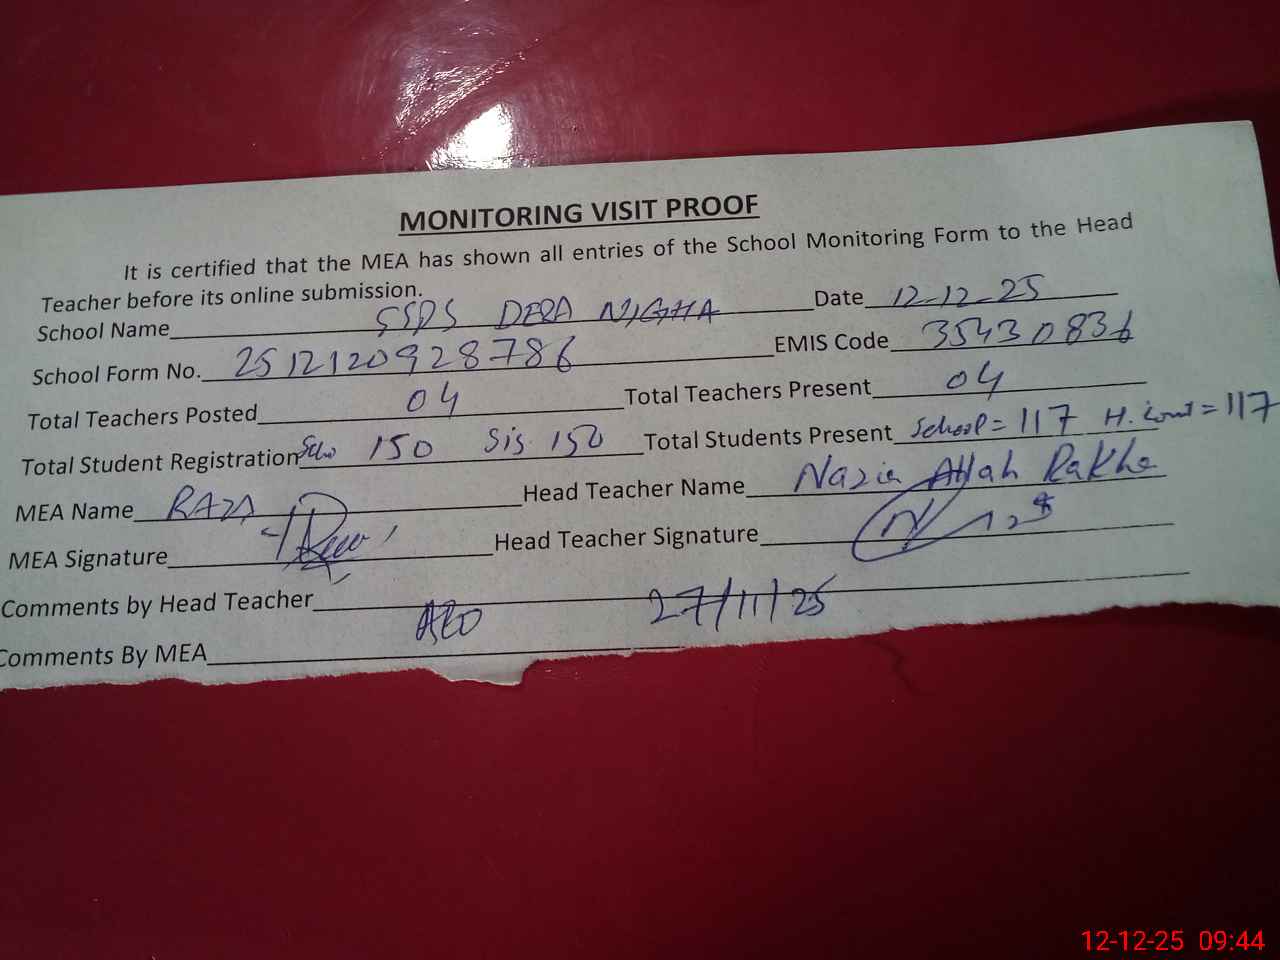 MONITORING VISIT PROOF
It is certified that the MEA has shown all entries of the School Monitoring Form to the Head
Teacher before its online submission.
School Name SSPS DERA NIGHA Date 12-12-25
School Form No. 2512120928786 EMIS Code 35430836
Total Teachers Posted 04 Total Teachers Present 04
Total Student Registration Scho 150 Sis 150 Total Students Present School = 117 H. Count = 117
MEA Name RAZA Head Teacher Name Nazia Allah Rakha
MEA Signature Head Teacher Signature
Comments by Head Teacher
AEO 27/11/25
Comments By MEA
12-12-25 09:44